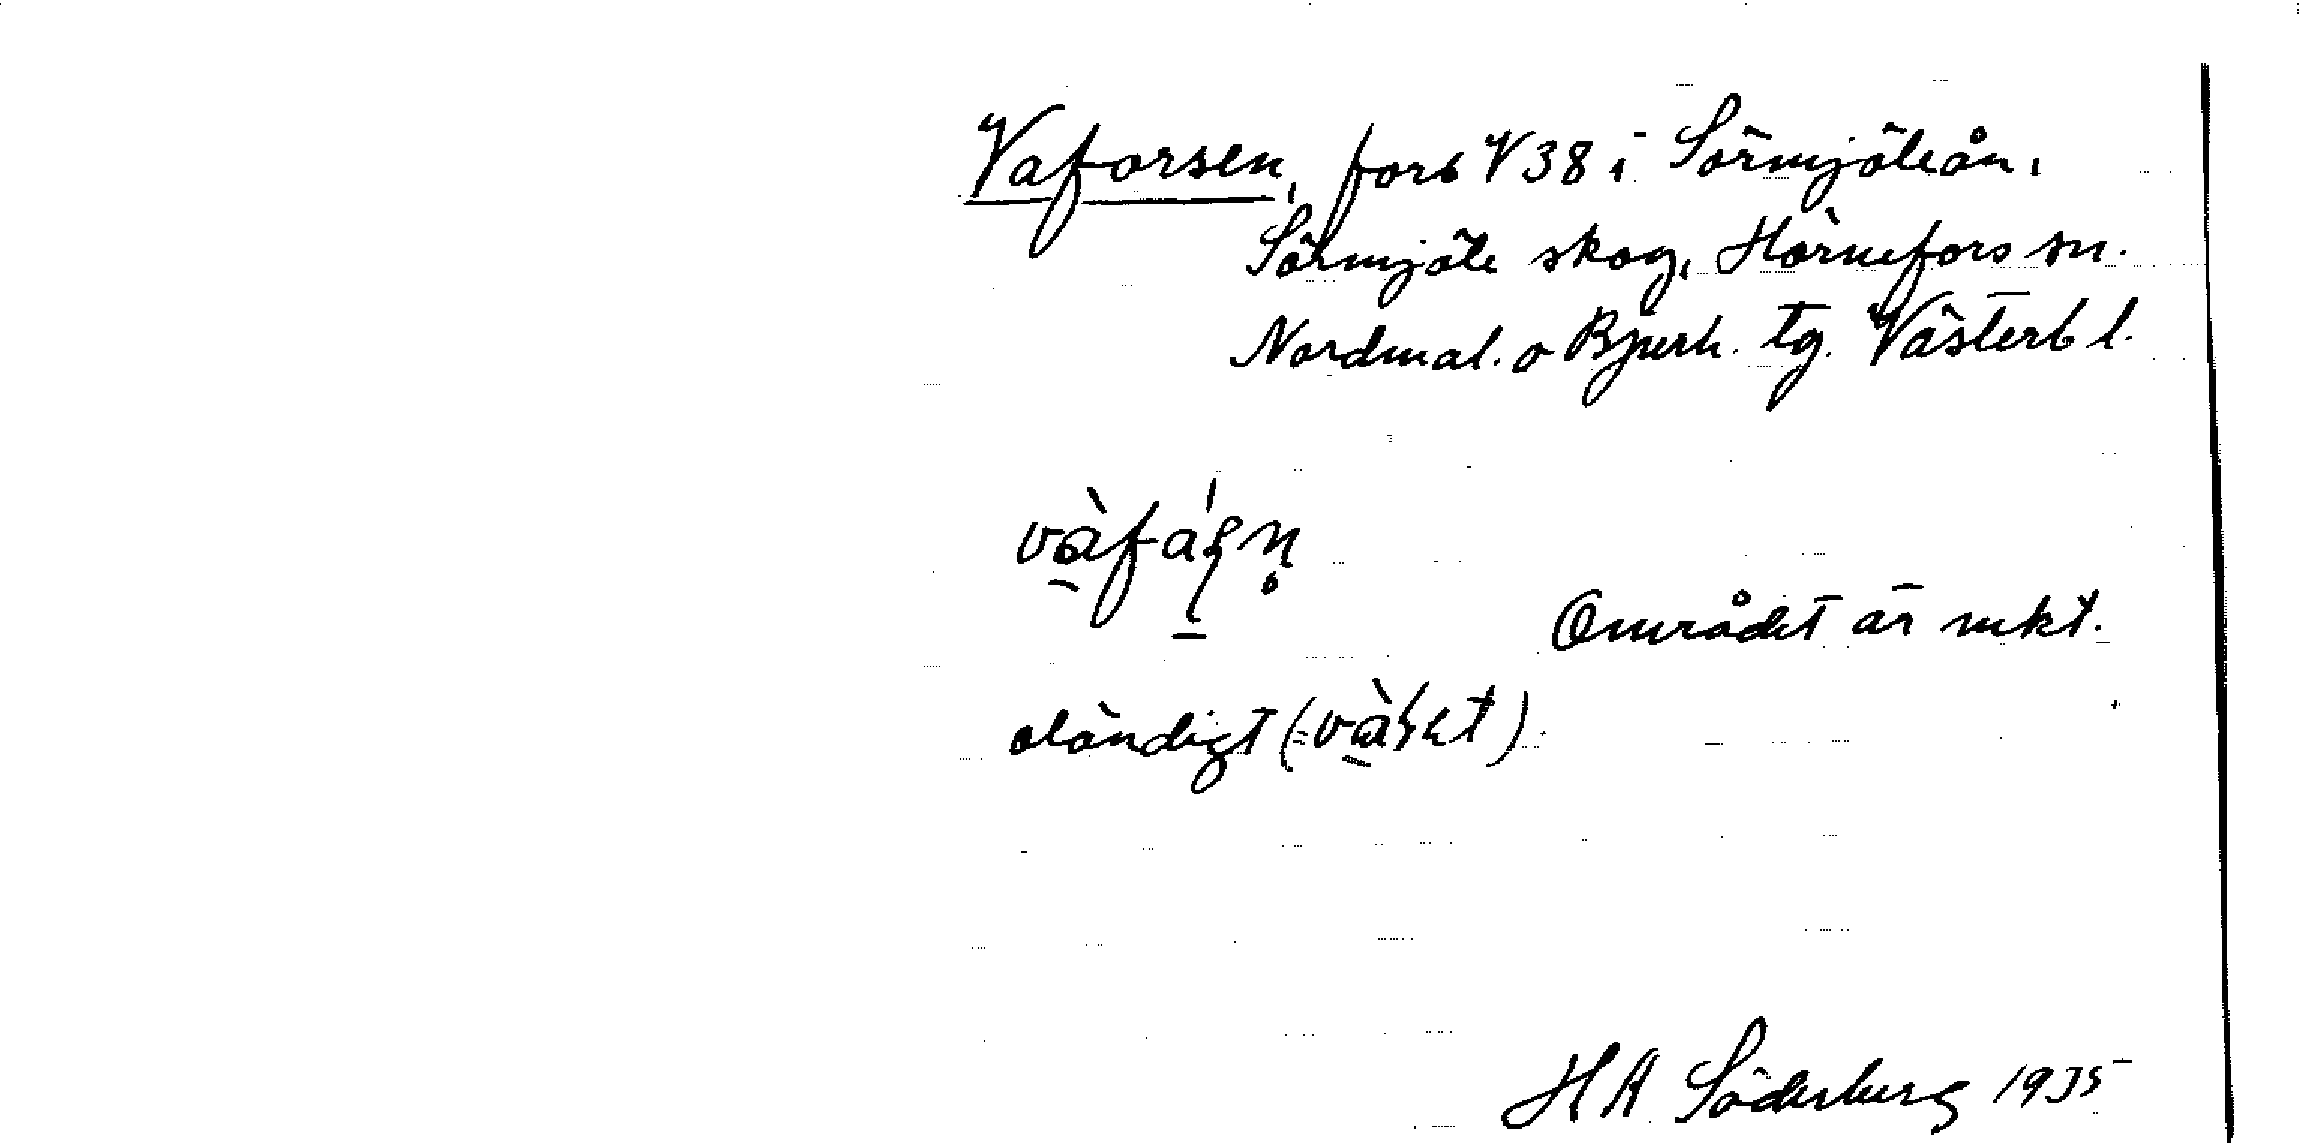 Vaforsen, fors V38 i Sörmjöleån,
Sörmjöle skog, Hörnefors sn.
Nordmal. o Bjurh. tg. Västerb l.
Området är mkt.
oländigt
HA Söderberg 1935